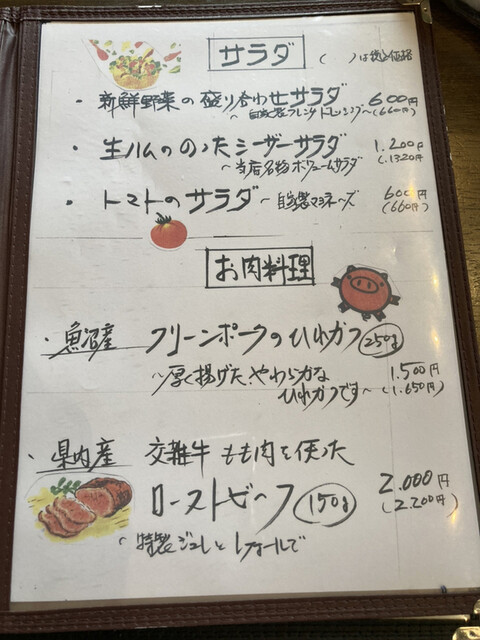 サラダ ( )は税込価格
・新鮮野菜の盛り合わせサラダ 600円
～自家製フレンチドレッシング～ (660円)
・生ハムののったシーザーサラダ 1.200円
～当店名物ボリュームサラダ (1.320円)
・トマトのサラダ ～自家製マヨネーズ 600円
(660円)
お肉料理
・魚沼産 クリーンポークのひれかつ 250g
～厚く揚げた、やわらかな 1.500円
ひれかつです～ (1.650円)
・県内産 交雑牛もも肉を使った
ローストビーフ 150g 2.000円
(2.200円)
～特製ジュレとレフォールで